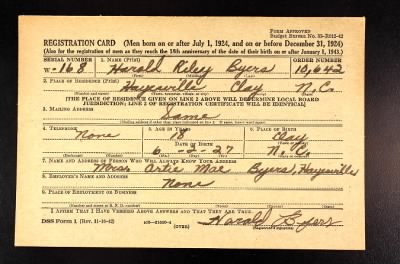 Form Approved
Budget Bureau No. 33-R012-42
REGISTRATION CARD (Men born on or after July 1, 1924, and on or before December 31, 1924)
(Also for the registration of men as they reach the 18th anniversary of the date of their birth on or after January 1, 1943.)
SERIAL NUMBER 1. NAME (Print) ORDER NUMBER
W-168 Harold Riley Byers 10,642
(First) (Middle) (Last)
2. PLACE OF RESIDENCE (Print)
Hayesville Clay N.C.
[THE PLACE OF RESIDENCE GIVEN ON LINE 2 ABOVE WILL DETERMINE LOCAL BOARD
JURISDICTION; LINE 2 OF REGISTRATION CERTIFICATE WILL BE IDENTICAL]
3. MAILING ADDRESS
Same
4. TELEPHONE 5. AGE IN YEARS 6. PLACE OF BIRTH
None 18 Clay
DATE OF BIRTH
6-2-27 N.C.
7. NAME AND ADDRESS OF PERSON WHO WILL ALWAYS KNOW YOUR ADDRESS
Mrs. Artie Mae Byers, Hayesville
8. EMPLOYER'S NAME AND ADDRESS
None
9. PLACE OF EMPLOYMENT OR BUSINESS
I AFFIRM THAT I HAVE VERIFIED ABOVE ANSWERS AND THAT THEY ARE TRUE.
DSS Form 1 (Rev. 11-16-42) (OVER) Harold Byers